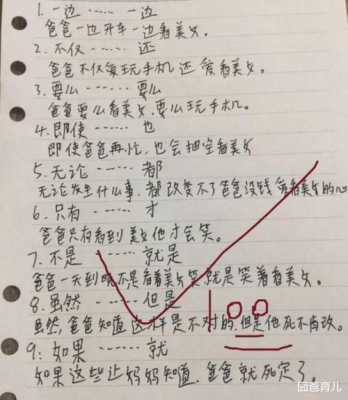 1. 一边 …… 一边
爸爸一边开车一边看美女。
2. 不仅 …… 还
爸爸不仅爱玩手机还爱看美女。
3. 要么 …… 要么
爸爸要么看美女,要么玩手机。
4. 即使 …… 也
即使爸爸再忙,也会抽空看美女
5. 无论 …… 都
无论发生什么事,都改变不了爸爸没钱爱看美女的心
6. 只有 …… 才
爸爸只有看到美女他才会笑。
7. 不是 …… 就是
爸爸一天到晚不是看着美女笑就是笑着看美女。
8. 虽然 …… 但是
虽然,爸爸知道这样是不对的,但是他死不肯改。
9: 如果 …… 就
如果这些让妈妈知道,爸爸就死定了。
100
@爸育儿